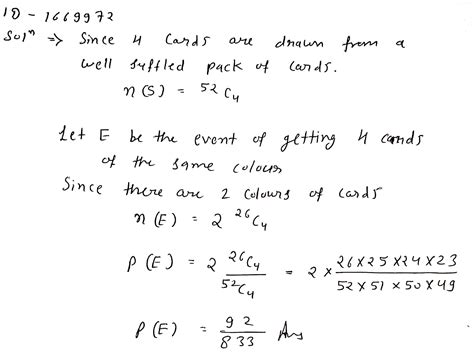 ID - 1669972
Solⁿ ⇒ Since 4 cards are drawn from a
well suffled pack of cards.
n(S) = ⁵²C₄
Let E be the event of getting 4 cards
of the same colour
Since there are 2 colours of cards
n(E) = 2 ²⁶C₄
P(E) = 2 ²⁶C₄ / ⁵²C₄ = 2 × 26×25×24×23 / 52×51×50×49
P(E) = 92 / 833 Ans